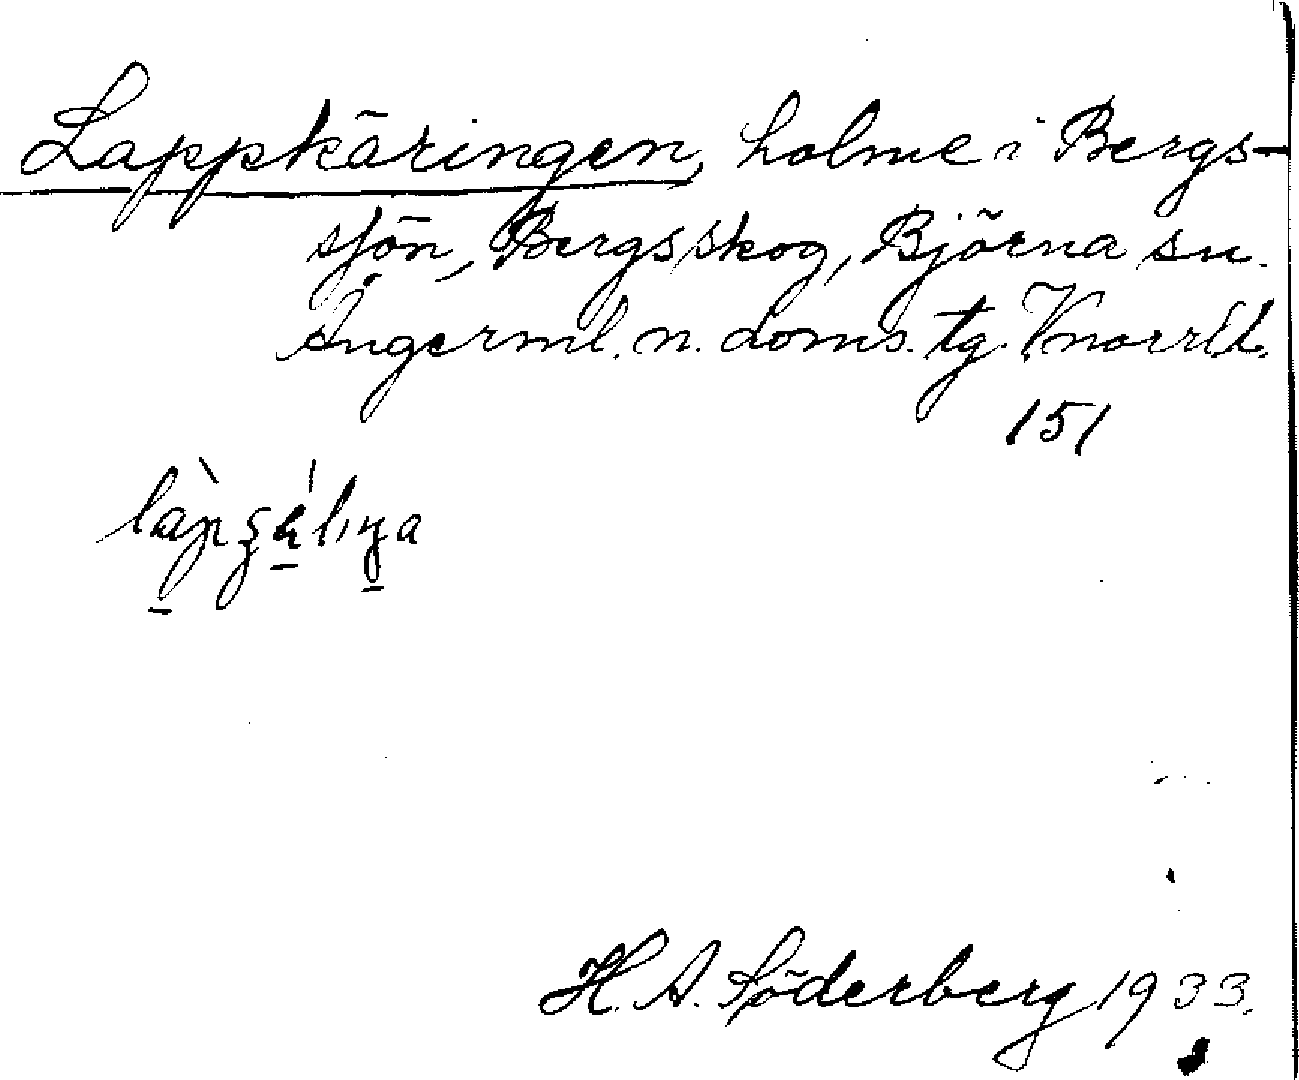 Lappkäringen, holme i Bergs-
sjön, Bergsskog, Björna sn.
Ångerml. n. doms. tg. Vnorrld.
151
H. A. Söderberg 1933.